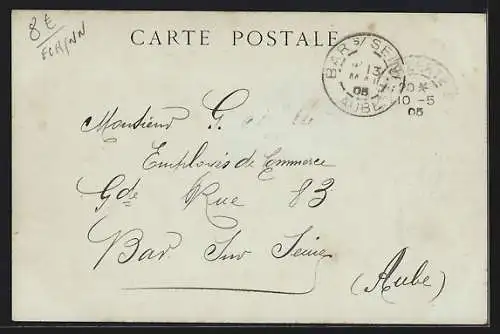 8€
CARTE POSTALE
BAR S/ SEINE
13
05
AUBE
20 *
10 - 5
05
Monsieur G.
Employés de Commerce
Gde Rue 83
Bar Sur Seine
(Aube)